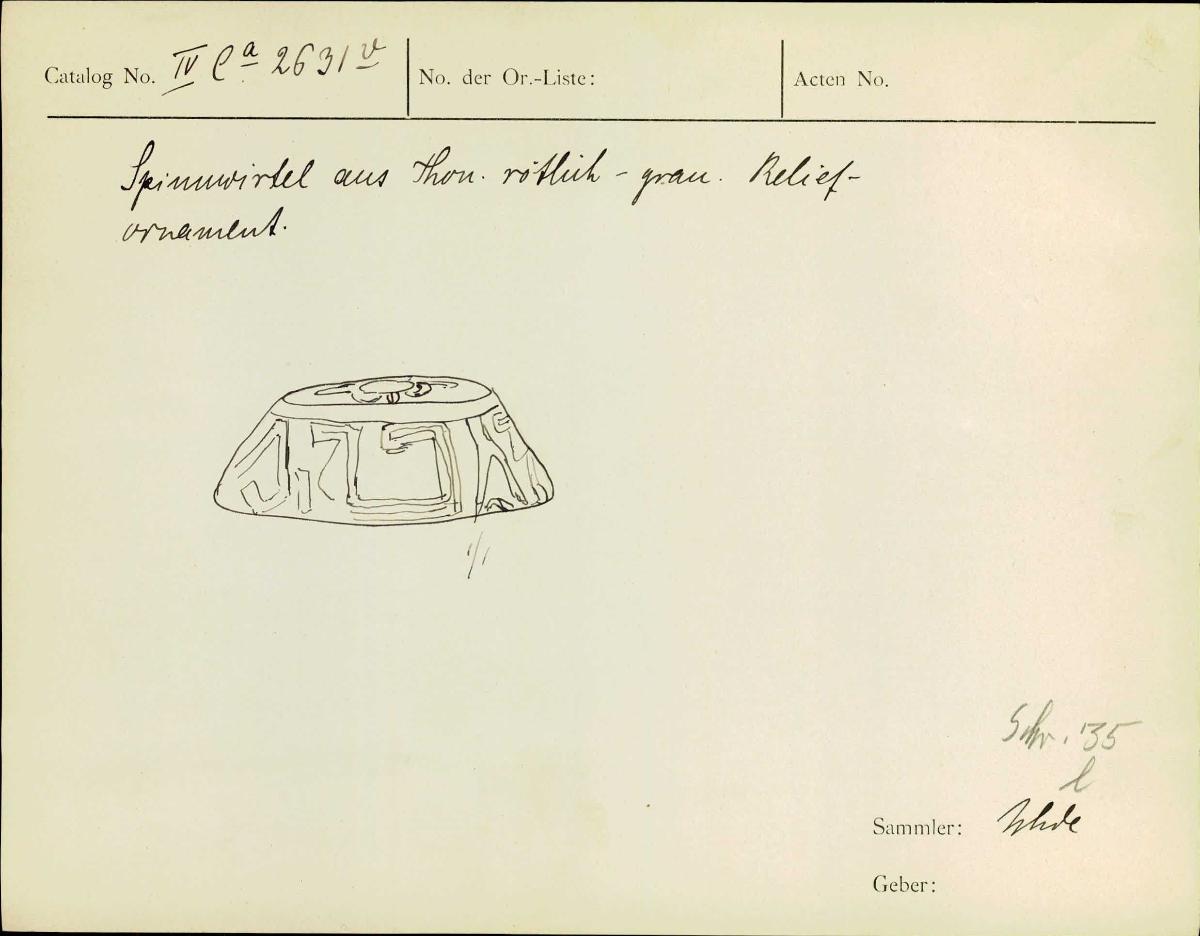 Catalog No. IV Ca 2631 v No. der Or.-Liste: Acten No.
Spinnwirtel aus Thon. rötlich - grau. Relief-
ornament.
1/1
Schr. 35
l
Sammler: Uhde
Geber: